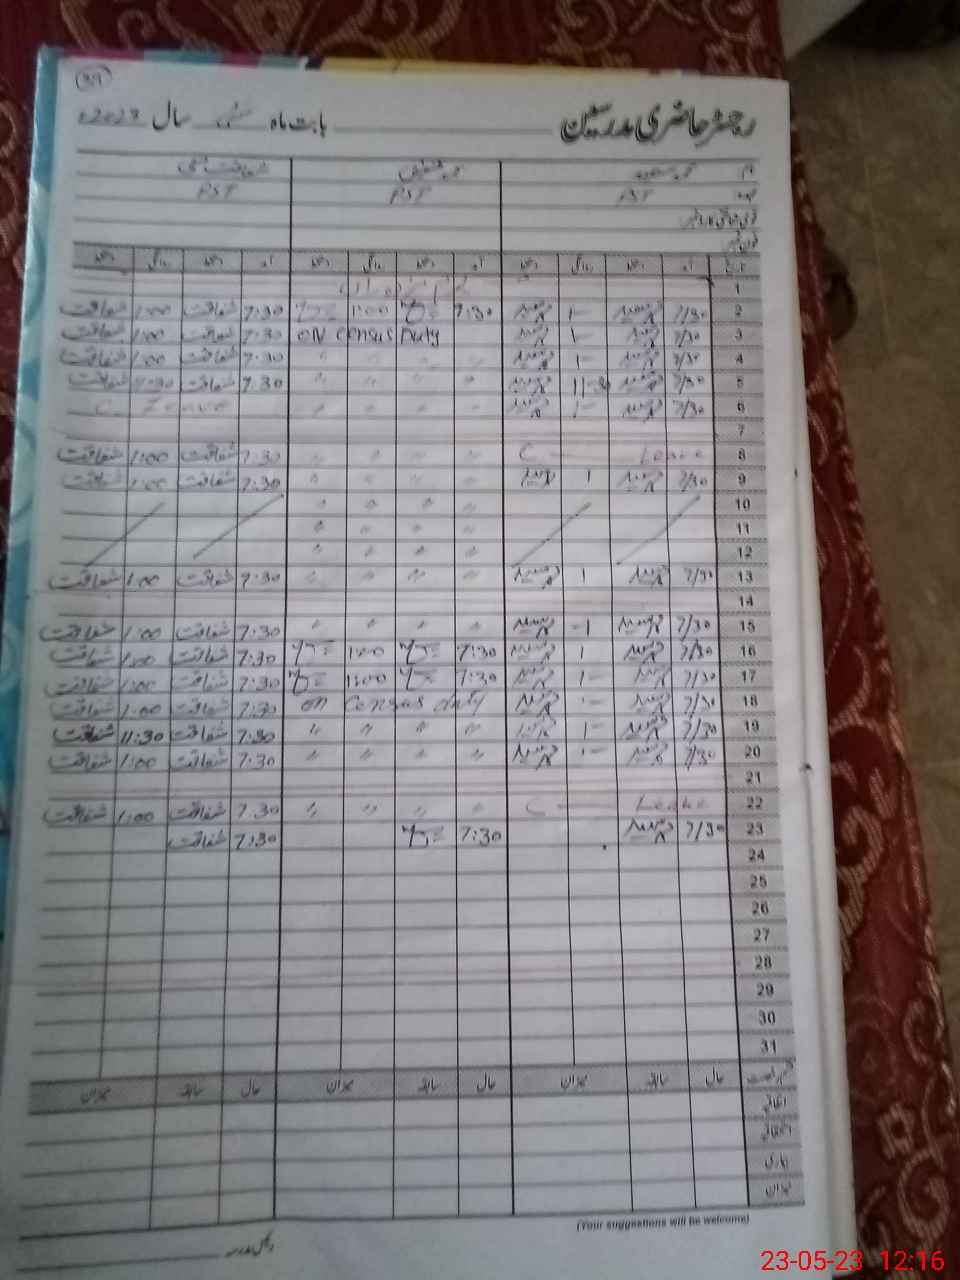 39
رجسٹر حاضری مدرسین بابت ماہ مئی سال 2023ء
نام محمد سعید محمد شفیق شفاقت علی
عہدہ PST PST PST
قومی شناختی کارڈ نمبر
فون نمبر
تاریخ آمد دستخط روانگی دستخط آمد دستخط روانگی دستخط آمد دستخط روانگی دستخط
1
2 7/30 1- 7:30 1:00 7:30 شفاقت 1:00 شفاقت
3 7/30 1- ON Census Duty 7:30 شفاقت 1:00 شفاقت
4 7/30 1- " " " " 7:30 شفاقت 1:00 شفاقت
5 7/30 11-30 " " " " 7:30 شفاقت 11:30 شفاقت
6 7/30 1- " " " " C. Leave
7
8 C Leave " " " " 7:30 شفاقت 1:00 شفاقت
9 7/30 1 " " " " 7:30 شفاقت 1:00 شفاقت
10 " " " "
11 " " " "
12 " " " "
13 7/30 1 " " " " 7:30 شفاقت 1:00 شفاقت
14
15 7/30 1- " " " " 7:30 شفاقت 1:00 شفاقت
16 7/30 1 7:30 1:00 7:30 شفاقت 1:00 شفاقت
17 7/30 1- 7:30 1:00 7:30 شفاقت 1:00 شفاقت
18 7/30 1- on Census duty 7:30 شفاقت 1:00 شفاقت
19 7/30 1- " " " " 7:30 شفاقت 11:30 شفاقت
20 7/30 1- " " " " 7:30 شفاقت 1:00 شفاقت
21
22 C Leave " " " " 7:30 شفاقت 1:00 شفاقت
23 7/30 7:30 7:30 شفاقت
24
25
26
27
28
29
30
31
قسم رخصت حال سابقہ میزان حال سابقہ میزان حال سابقہ میزان
اتفاقیہ
استحقاقی
بیماری
میزان
(Your suggestions will be welcome)
مدرسہ
23-05-23 12:16